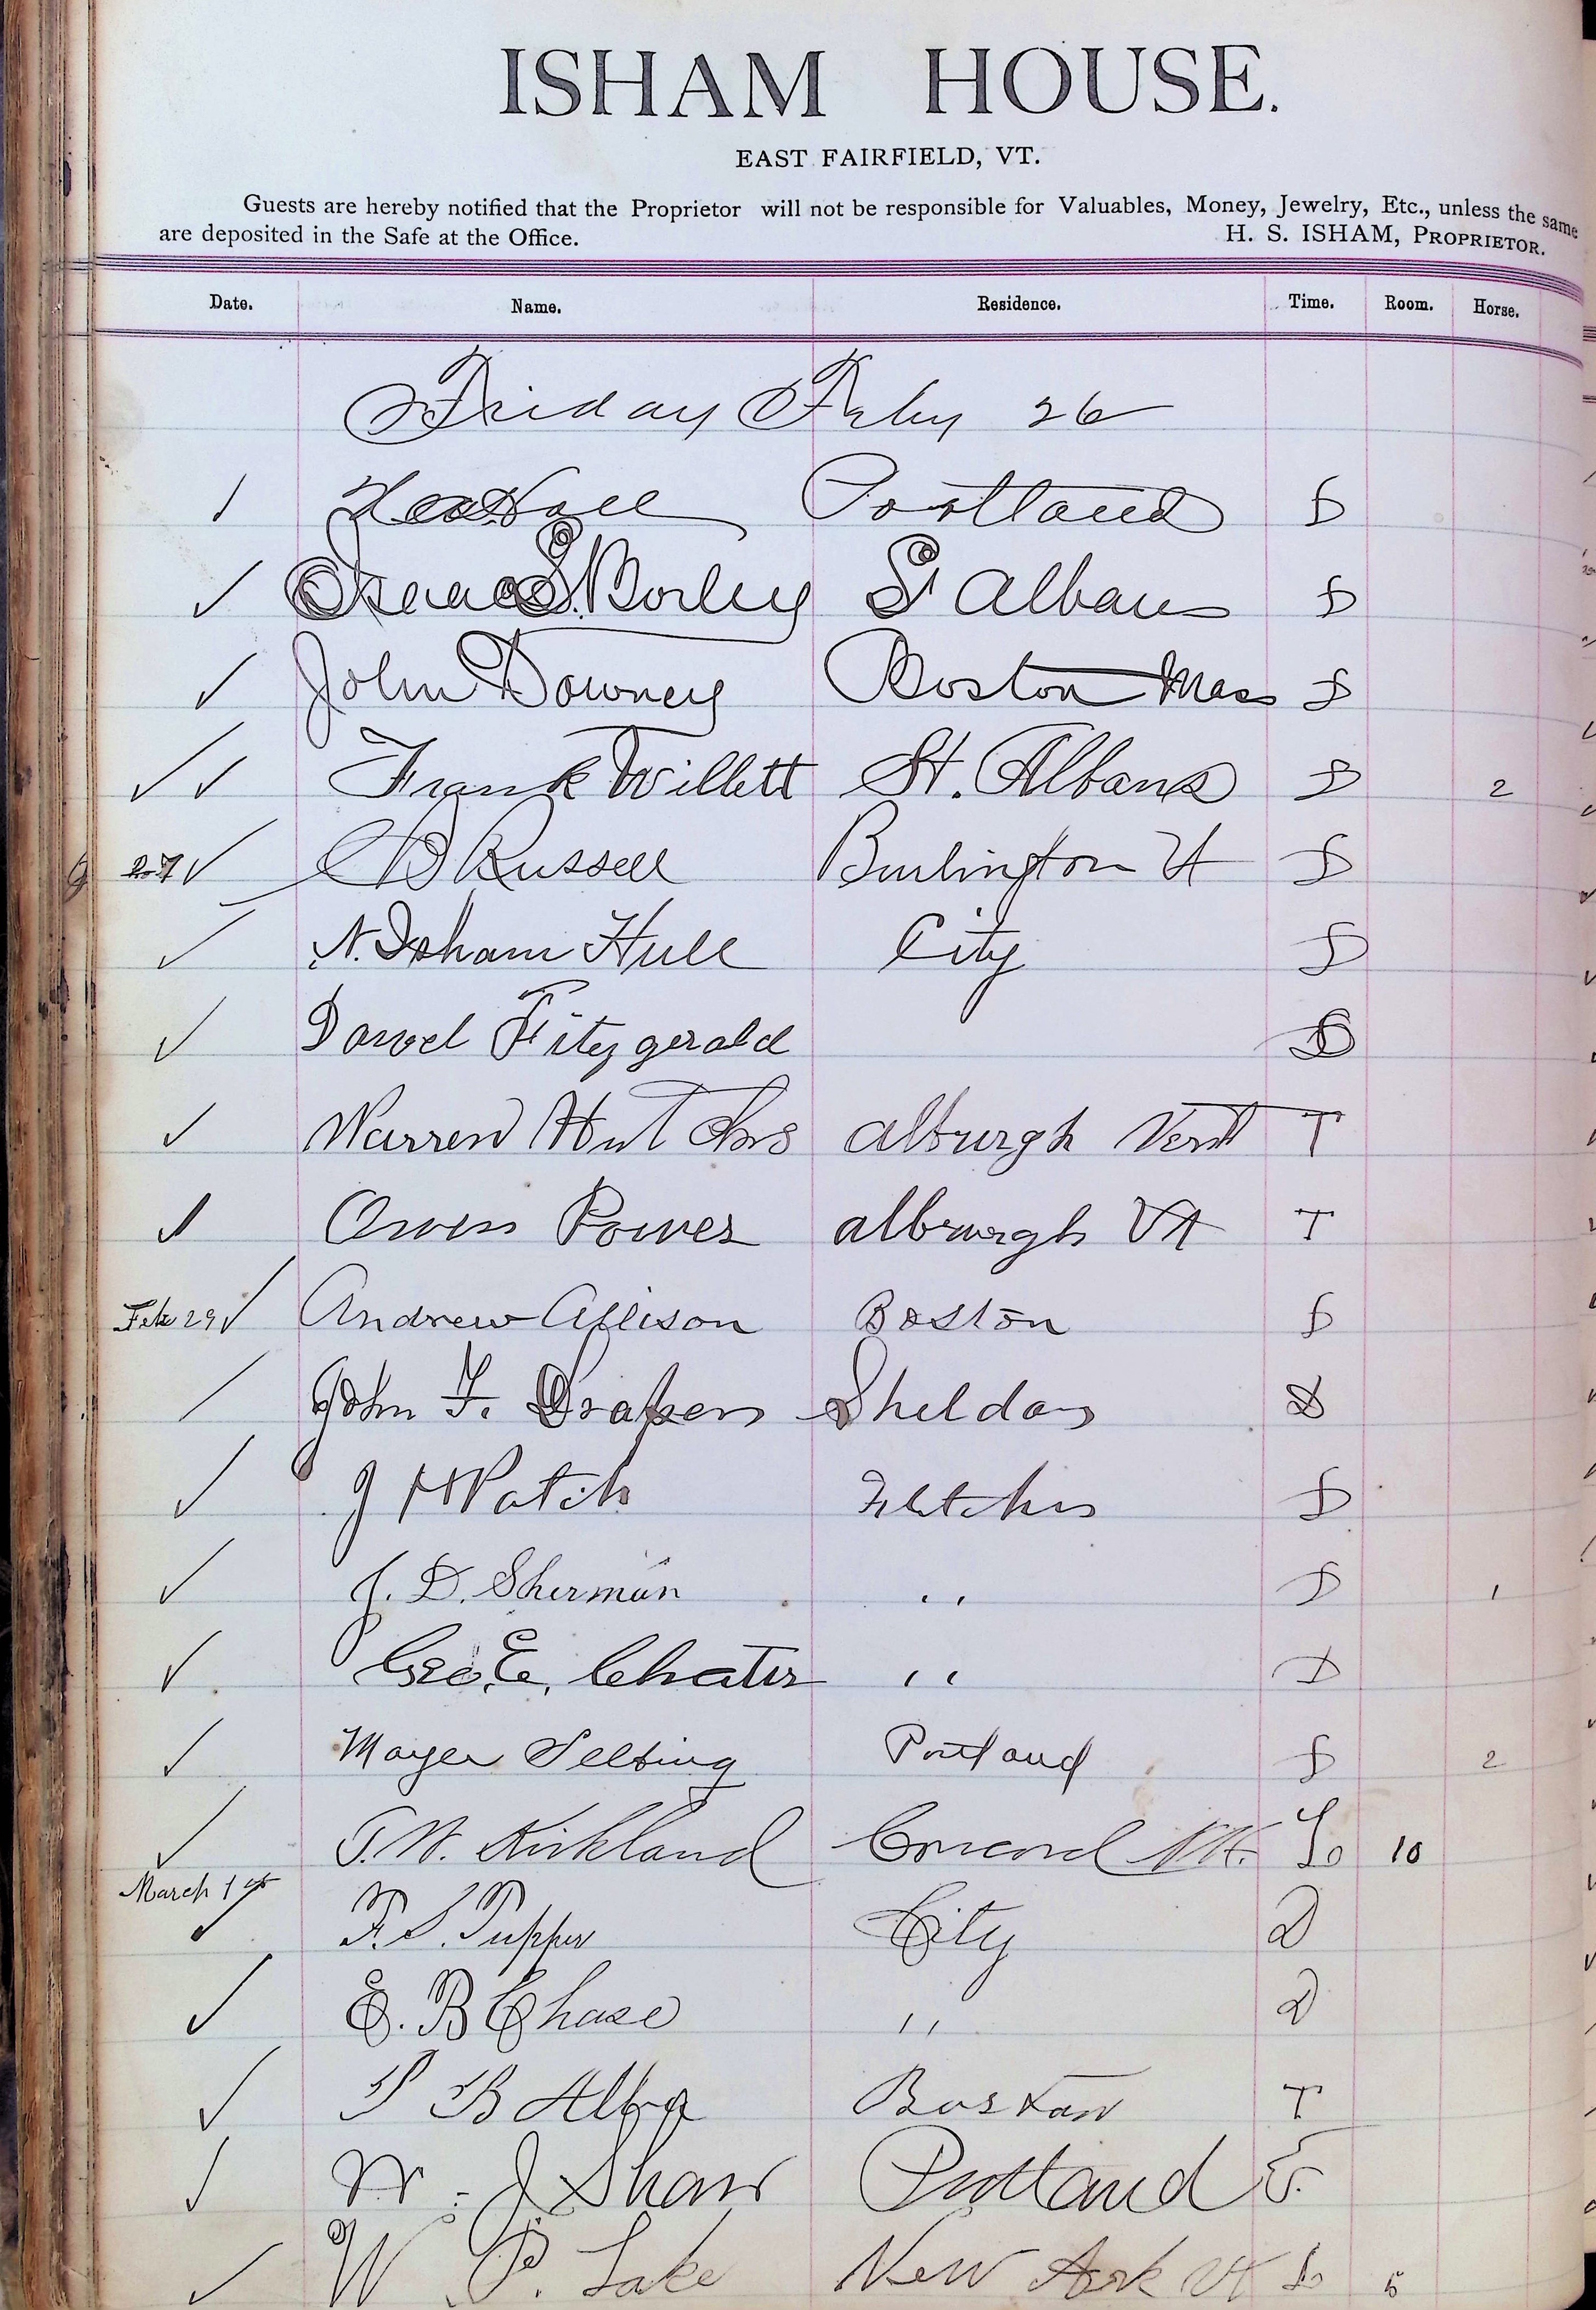 ISHAM HOUSE.
EAST FAIRFIELD, VT.
Guests are hereby notified that the Proprietor will not be responsible for Valuables, Money, Jewelry, Etc., unless the same
are deposited in the Safe at the Office. H. S. ISHAM, PROPRIETOR.
Date. Name. Residence. Time. Room. Horse.
Friday Feby 26
Portland D
Isaac S. Borley St Albans D
John Downey Boston Mass D
Frank Willett St. Albans D 2
27 Russell Burlington Vt D
N. Isham Hull City D
Fitzgerald D
Warren Hutchins alburgh Vermt T
Owen Power alburgh Vt T
Feb 29 Andrew Allison Boston D
John F. Draper Sheldon D
J H Patch Fletcher D
J. D. Sherman " D 1
Geo. E. Chater " D
Mayer Selbing Portland D 2
T. W. Kirkland Concord NH. Lo 10
March 1st
F. S. Tupper City D
E. B Chase " D
B Alba Boston T
W. J Shaw Portland
W. P. Lake New Ark Vt Lo 5